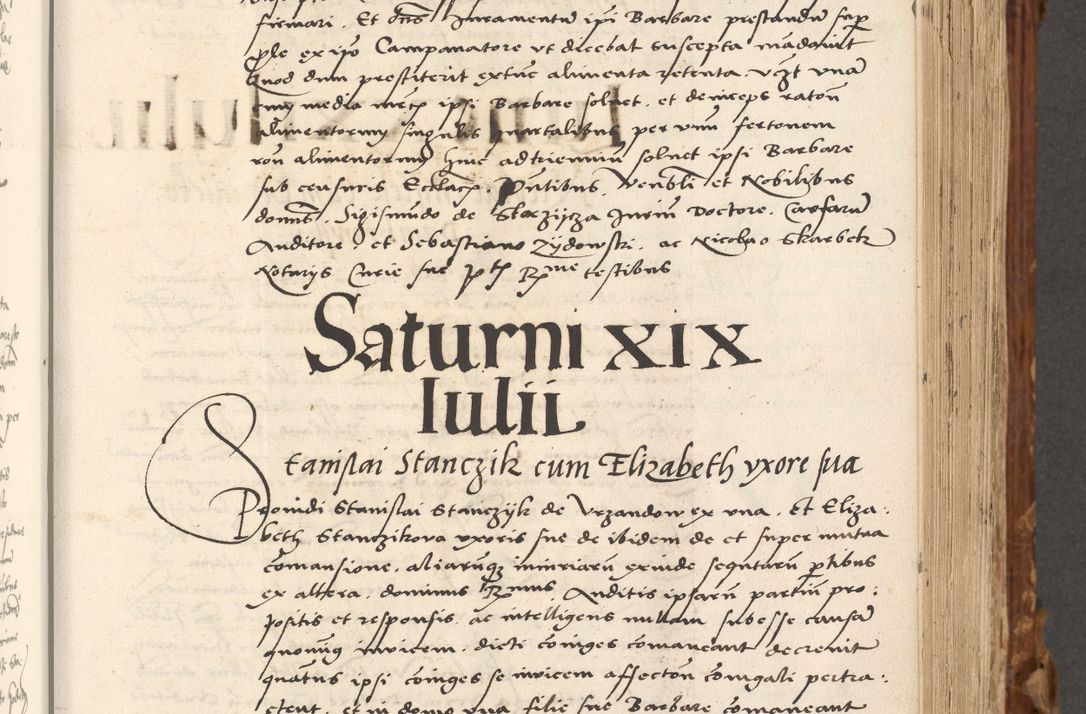 firmari. Et dns Juramentū ipi Barbare prestandū sup
ple ex ipo Campanatore vt dicebat suscepta mādauit
Quod dum prestiterit extūc alimenta retenta. vcʒt vnā
cum media mrcȩ ipsi Barbare soluet. et deinceps ratoñ
alimentorum singulis quartalibus per vnū fertonem
roñ alimentorum hinc ad triennium soluet ipsi Barbare
sub censuris Ecclaȩ. Pñtibus. Venbli et Nobilibus
domīs. Sigismūdo de Stazijcza Juriū Doctore. Causarū
Auditore. et Sebastiano Zijdowski. ac Nicolao Skarbek
Notarijs Curie sue pti Rme testibus
Saturni xix
Iulii
Stanislai Stanczik cum Elizabeth vxore sua
Prouidi Stanislai Stanczijk de Vrzandow ex vna. Et Eliza:
beth Stanczikowa vxoris sue de ibidem de et super mutua
comansione. aliarūqʒ iniuriarū exinde sequtarū ptibus
ex altera. dominus Rmus. Auditis ipsarū partiū pro:
positis et responsis. ac intelligens nullam subesse causā
quominus inuicem. dicti coniuges comaneant decreuit
quatñs ipsi coniuges se inuicem affectoñ coniugali pertra:
ctent. et in domo vna filie sue Barbare comaneant